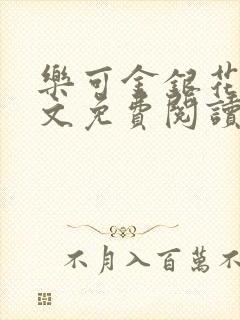 樂可金銀花
文免費閱讀
不月入百萬不